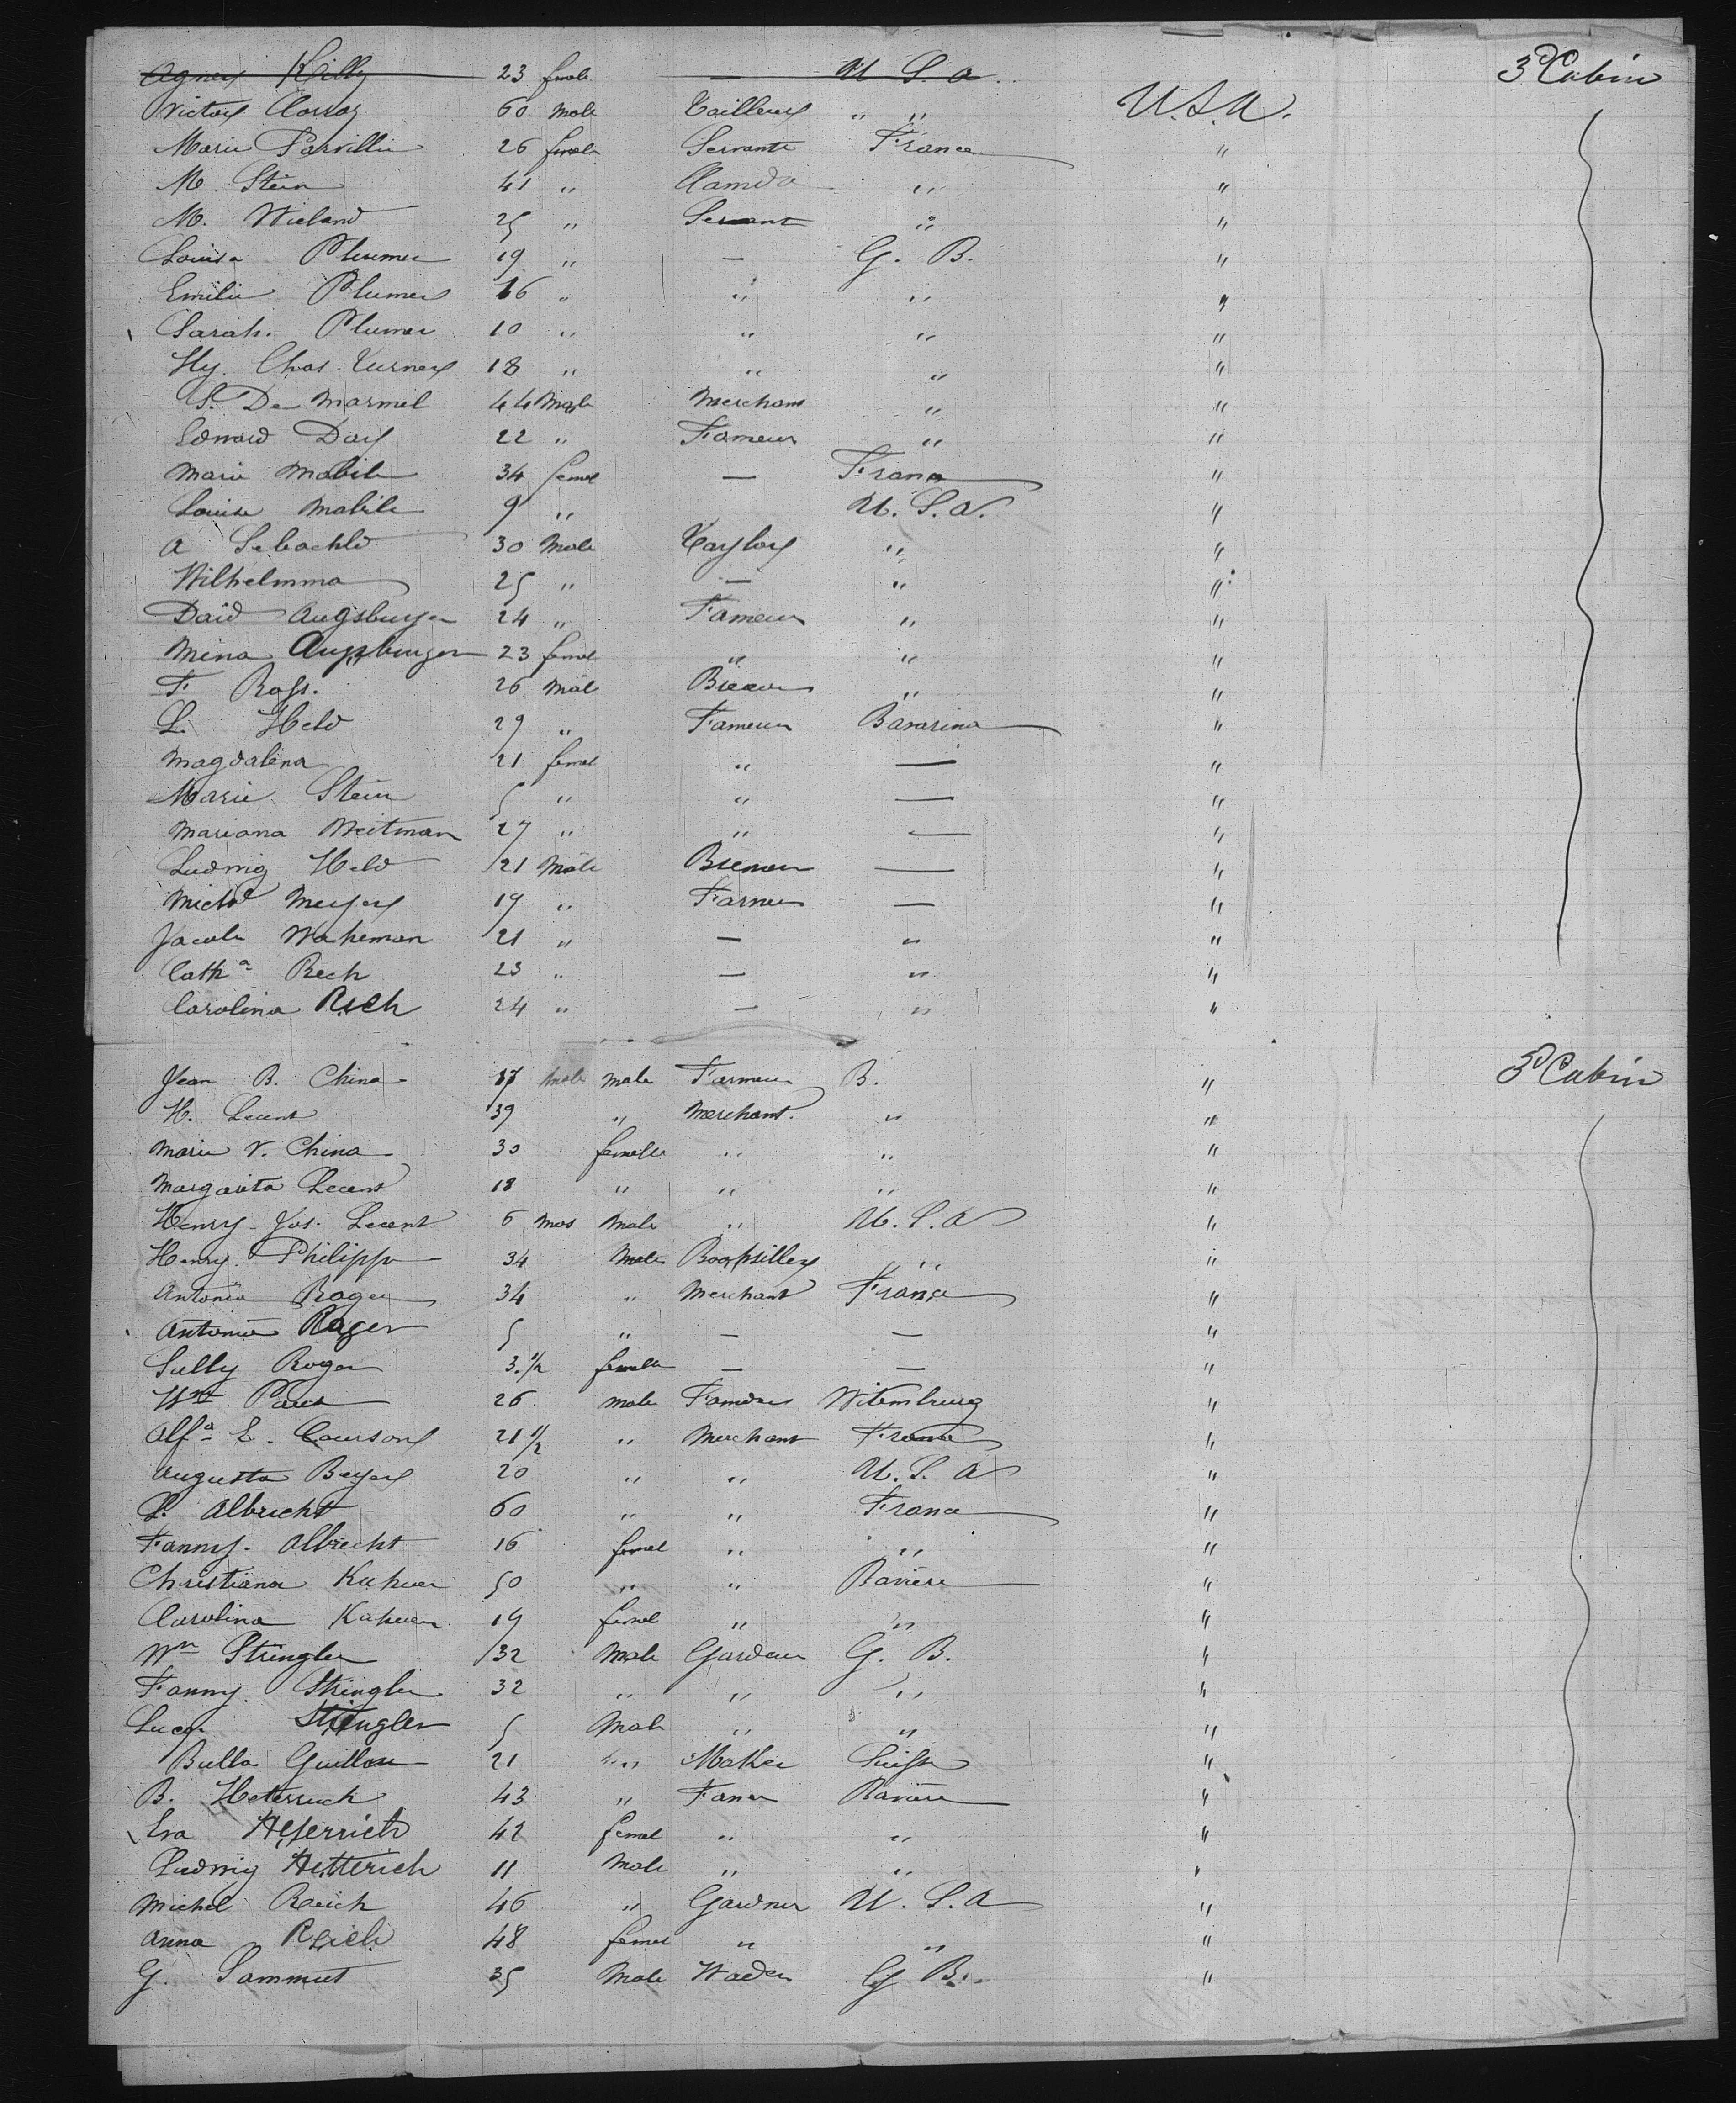 Agnes Kelly 23 femle — U S. A. 3d Cabin
Victor 60 Male Tailleur " " U.S.A.
Marie Parvillie 26 femle Servante France "
M. Stein 41 " "  "
M. Wieland 25 " Servant " "
Louisa Plumer 19 " — G. B. "
Emilie Plumer 16 " " " "
Sarah. Plumer 10 " " " "
Hy. Chas. Turner 18 " " " "
S. De Marmel 44 Male Merchant " "
Edward Day 22 " Fameur " "
Marie Mabile 34 femel — France "
Louise Mabile 9 " U. S. A. "
A 30 Male Taylor " "
Wilhelmma 25 " — " "
Daid Augsburger 24 " Fameur " "
Mina Augsburger 23 femel " " "
F Ross. 26 Male " "
L. Held 29 " Fameur Bavarina "
Magdalena 21 femel " — "
Marie Stein 5 " " — "
Mariana Weitman 27 " " — "
Ludwig Held 21 Male Brewer — "
Michl Meyer 19 " Farmer — "
Jacob Wakeman 21 " — " "
Catha Rech 23 " — " "
Carolina Reh 24 " — " "
Jean B. China 37 male male Farmeur B. " 3d Cabin
H. Lecent 39 " Merchant. " "
Marie V. China 30 female " " "
Margarita Lecent 18 " " " "
Henry Jos. Lecent 6 mos Male " U. S. A "
Henry. Philipp 34 Male Bookseller " "
Antonio Roger 34 " Merchant France "
Antonio Roger 5 " — — "
Sully Roger 3.1/2 female — — "
26 male "
Alfa E. Courson 21 1/2 " Merchant France "
Augusta Beyer 20 " " U. S. A "
L. Albrecht 60 " " France "
Fanny. Albrecht 16 femel " " "
Christiana 50 " " Baviere "
Carolina 19 femel " " "
Wm Stringler 32 Male Gardeur G. B. "
Fanny. Stringler 32 " " " "
Stringler 5 Male " " "
Bulla Guillou 21 " Maker Suisse "
B. Heterrich 43 " Baviere "
Eva Heterrich 42 femel " " "
Ludwig Hetterich 11 Male " " "
Michel Reich 46 " Gardner U. S. A "
Anna Reich 48 femel " " "
G. Sammut 35 Male G B. "